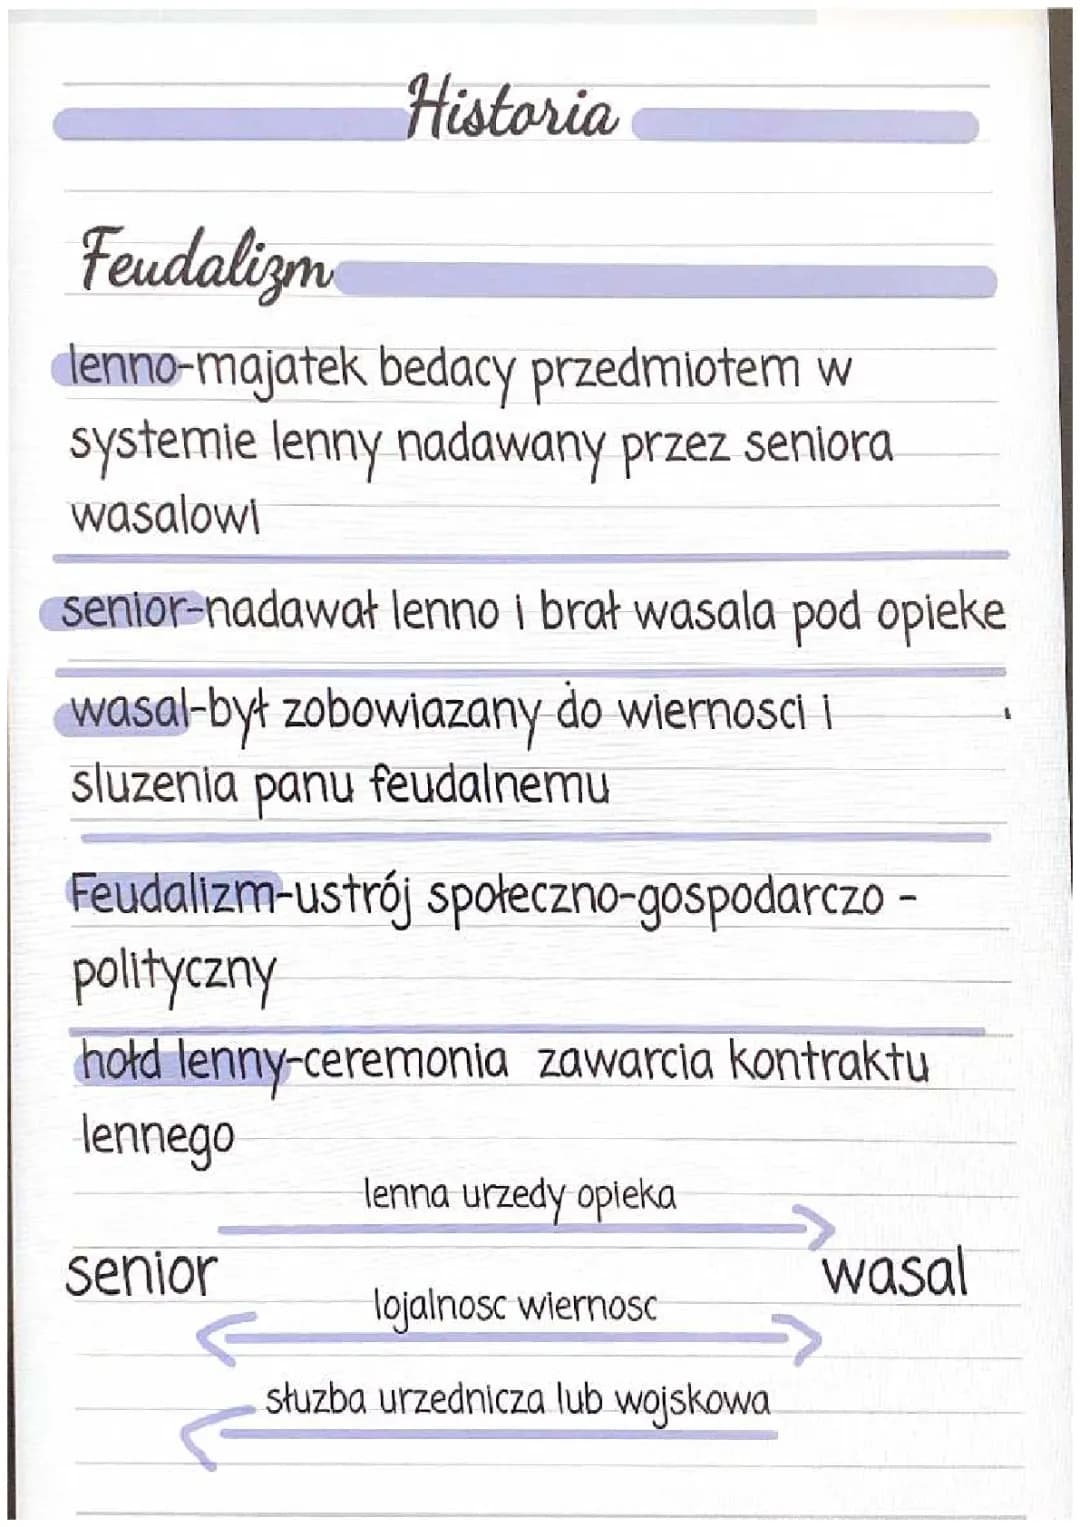 Historia
Feudalizm
lenno-majatek bedacy przedmiotem w
systemie lenny nadawany przez seniora
wasalowi
senior-nadawał lenno i brał wasala pod opieke
wasal-był zobowiazany do wiernosci i
sluzenia panu feudalnemu
Feudalizm-ustrój społeczno-gospodarczo -
polityczny
hołd lenny-ceremonia zawarcia kontraktu
lennego
lenna urzedy opieka
senior wasal
lojalnosc wiernosc
służba urzednicza lub wojskowa